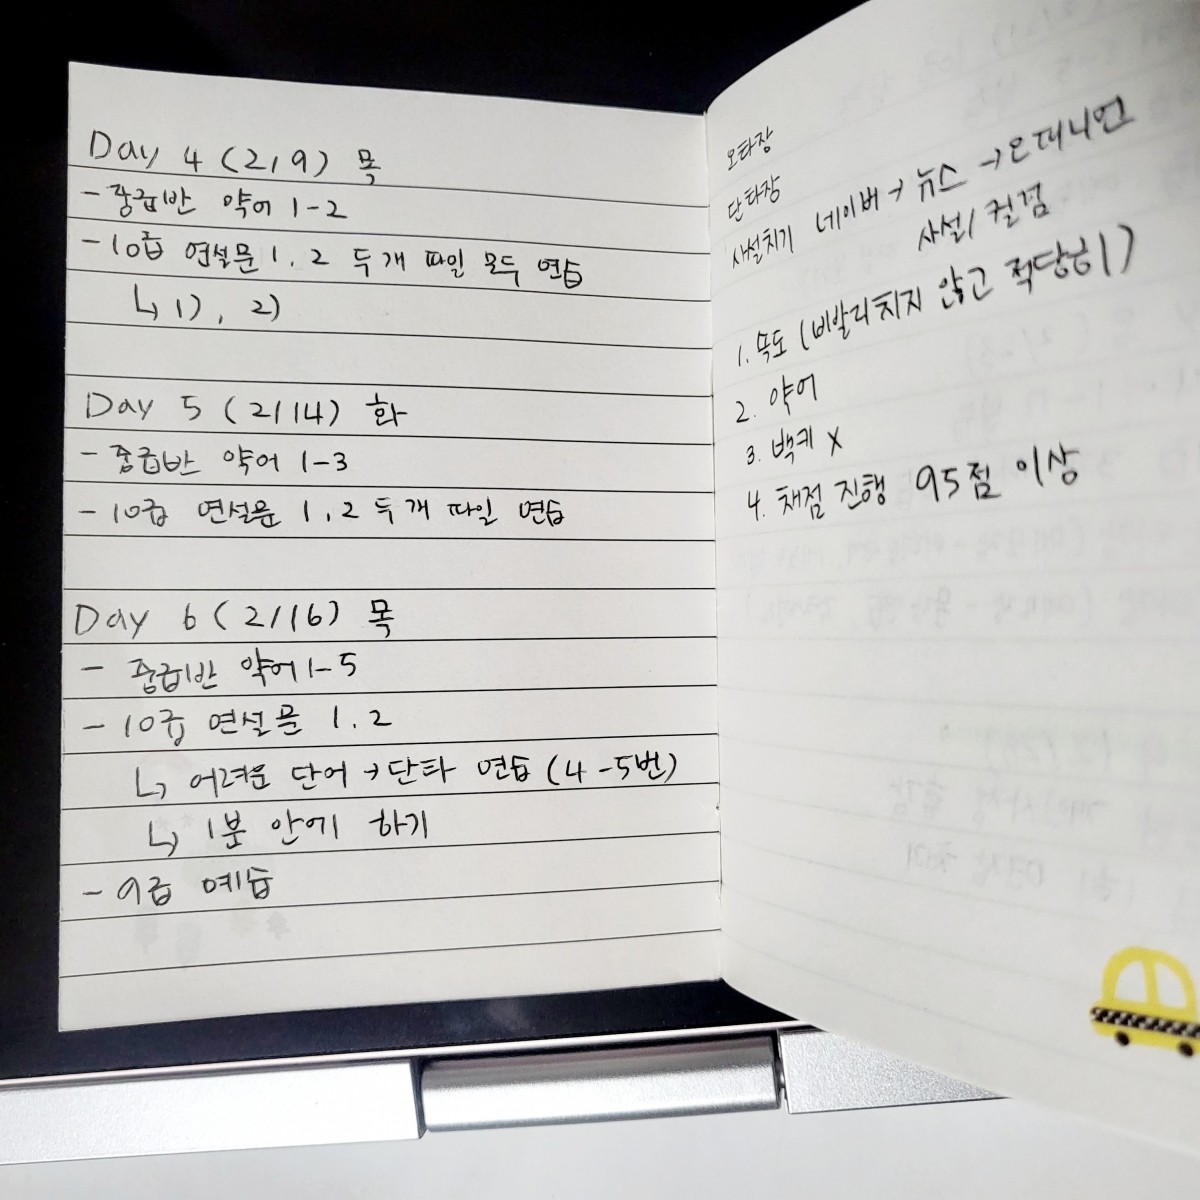 Day 4 (2/9) 목
- 중급반 약어 1-2
- 10급 연설문 1, 2 두 개 파일 모두 연습
↳ 1), 2)
Day 5 (2/14) 화
- 중급반 약어 1-3
- 10급 연설문 1, 2 두 개 파일 연습
Day 6 (2/16) 목
- 중급반 약어 1-5
- 10급 연설문 1. 2
↳ 어려운 단어 → 단타 연습 (4-5번)
↳ 1분 안에 하기
- 9급 예습
오타장
단타장
사설치기 네이버 → 뉴스 → 오피니언
사설/컬럼
1. 속도 (비발리치지 않고 적당히)
2. 약어
3. 백키 X
4. 채점 진행 95점 이상